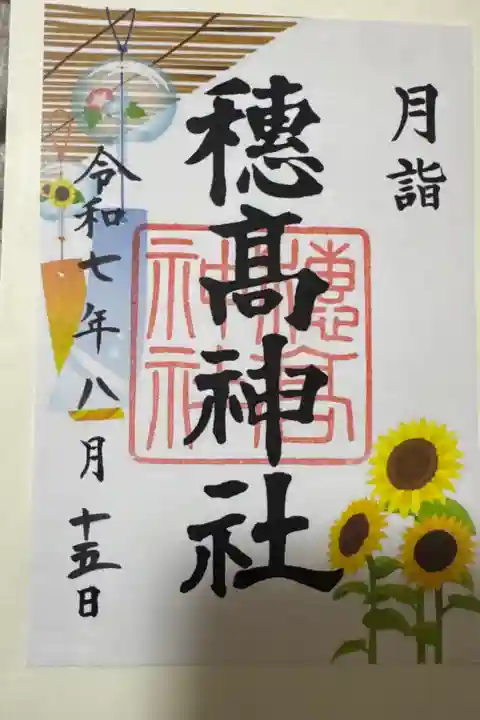 月詣
穂髙神社
穂高神社
令和七年八月十五日